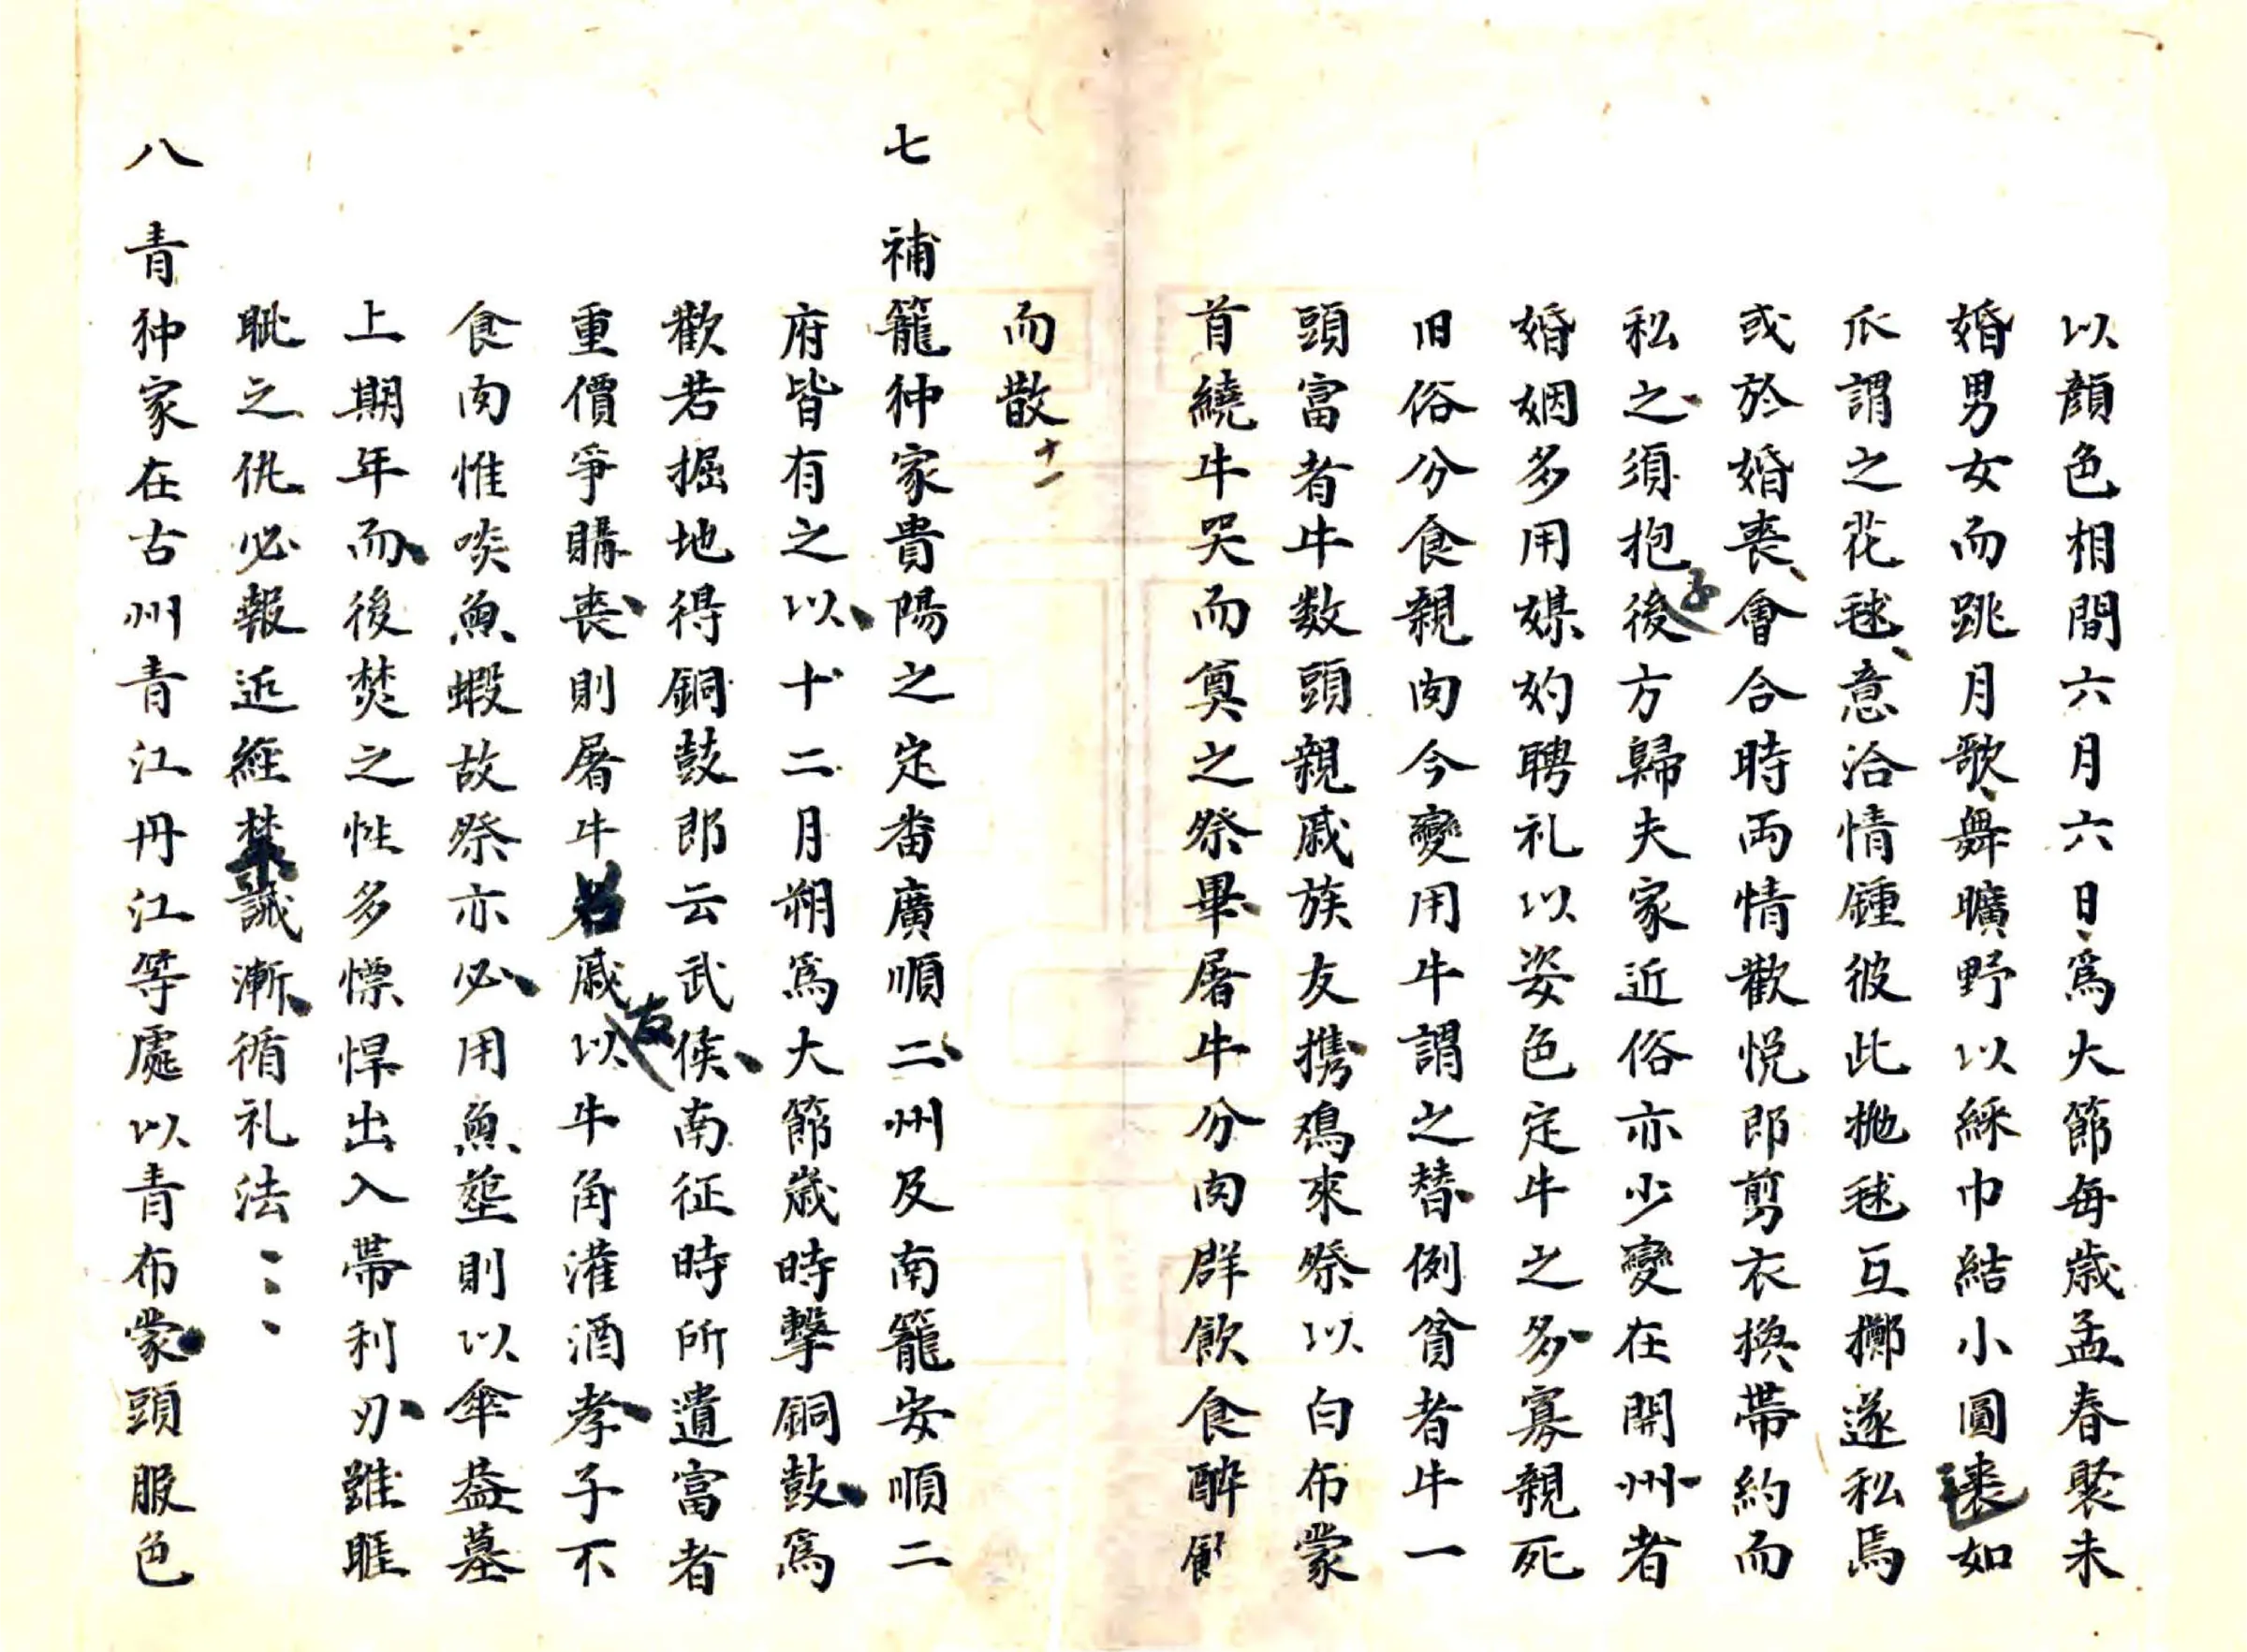 以顔色相間六月六日為大節每歲孟春聚未
婚男女而跳月歌舞曠野以綵巾結小圓毬如
瓜謂之花毬意洽情鍾彼此拋毬互擲遂私焉
或於婚喪會合時両情歡悦即剪衣換帶約而
私之須抱子後方歸夫家近俗亦少變在開州者
婚姻多用媒妁聘礼以姿色定牛之多寡親死
旧俗分食親肉今變用牛謂之替例貧者牛一
頭富者牛数頭親戚族友携鷄來祭以白布蒙
首繞牛哭而奠之祭畢屠牛分肉群飲食醉飽
而散十一
七 補籠狆家貴陽之定畨廣順二州及南籠安順二
府皆有之以十二月朔爲大節歲時擊銅鼓爲
歡若掘地得銅鼓即云武侯南征時所遺富者
重價爭購喪則屠牛召戚友以牛角灌酒孝子不
食肉惟啖魚蝦故祭亦必用魚塟則以傘蓋墓
上期年而後焚之性多慓悍出入帶利刃雖睚
眦之仇必報近經禁誡漸循礼法
八 青狆家在古州青江丹江等處以青布蒙頭服色